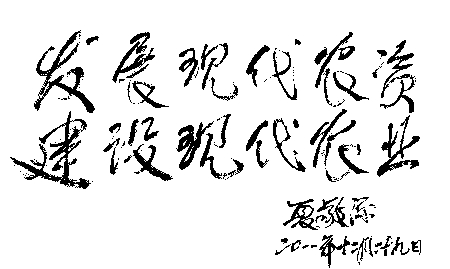 发展现代农资
建设现代农业
夏敬源
二〇一一年十二月二十九日